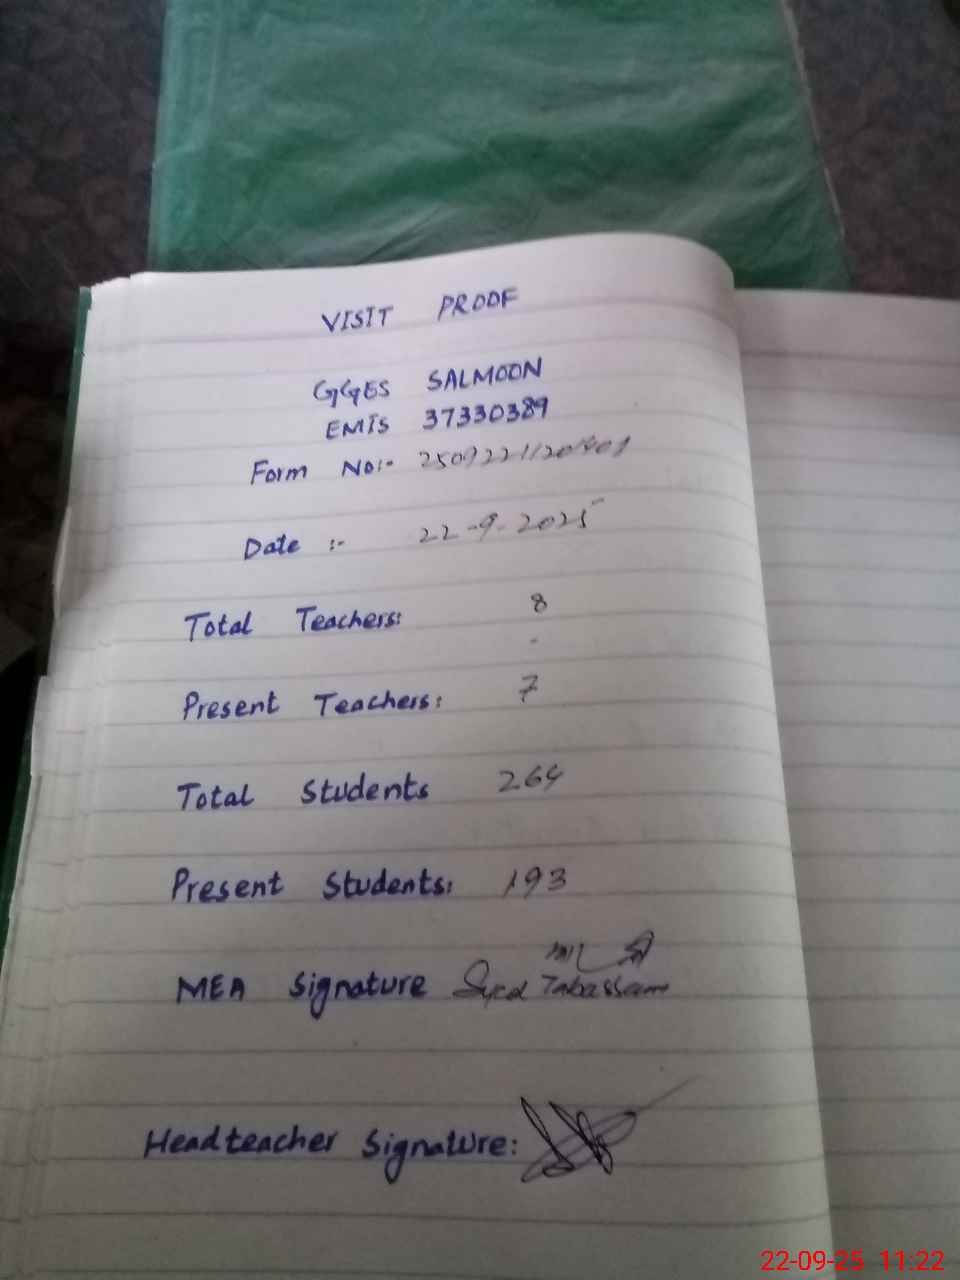 VISIT PROOF
GGES SALMOON
EMIS 37330389
Form No:-
Date :- 22-9-2025
Total Teachers: 8
Present Teachers: 7
Total Students 264
Present Students: 193
MEA Signature Syed Tabassam
Headteacher Signature:
22-09-25 11:22